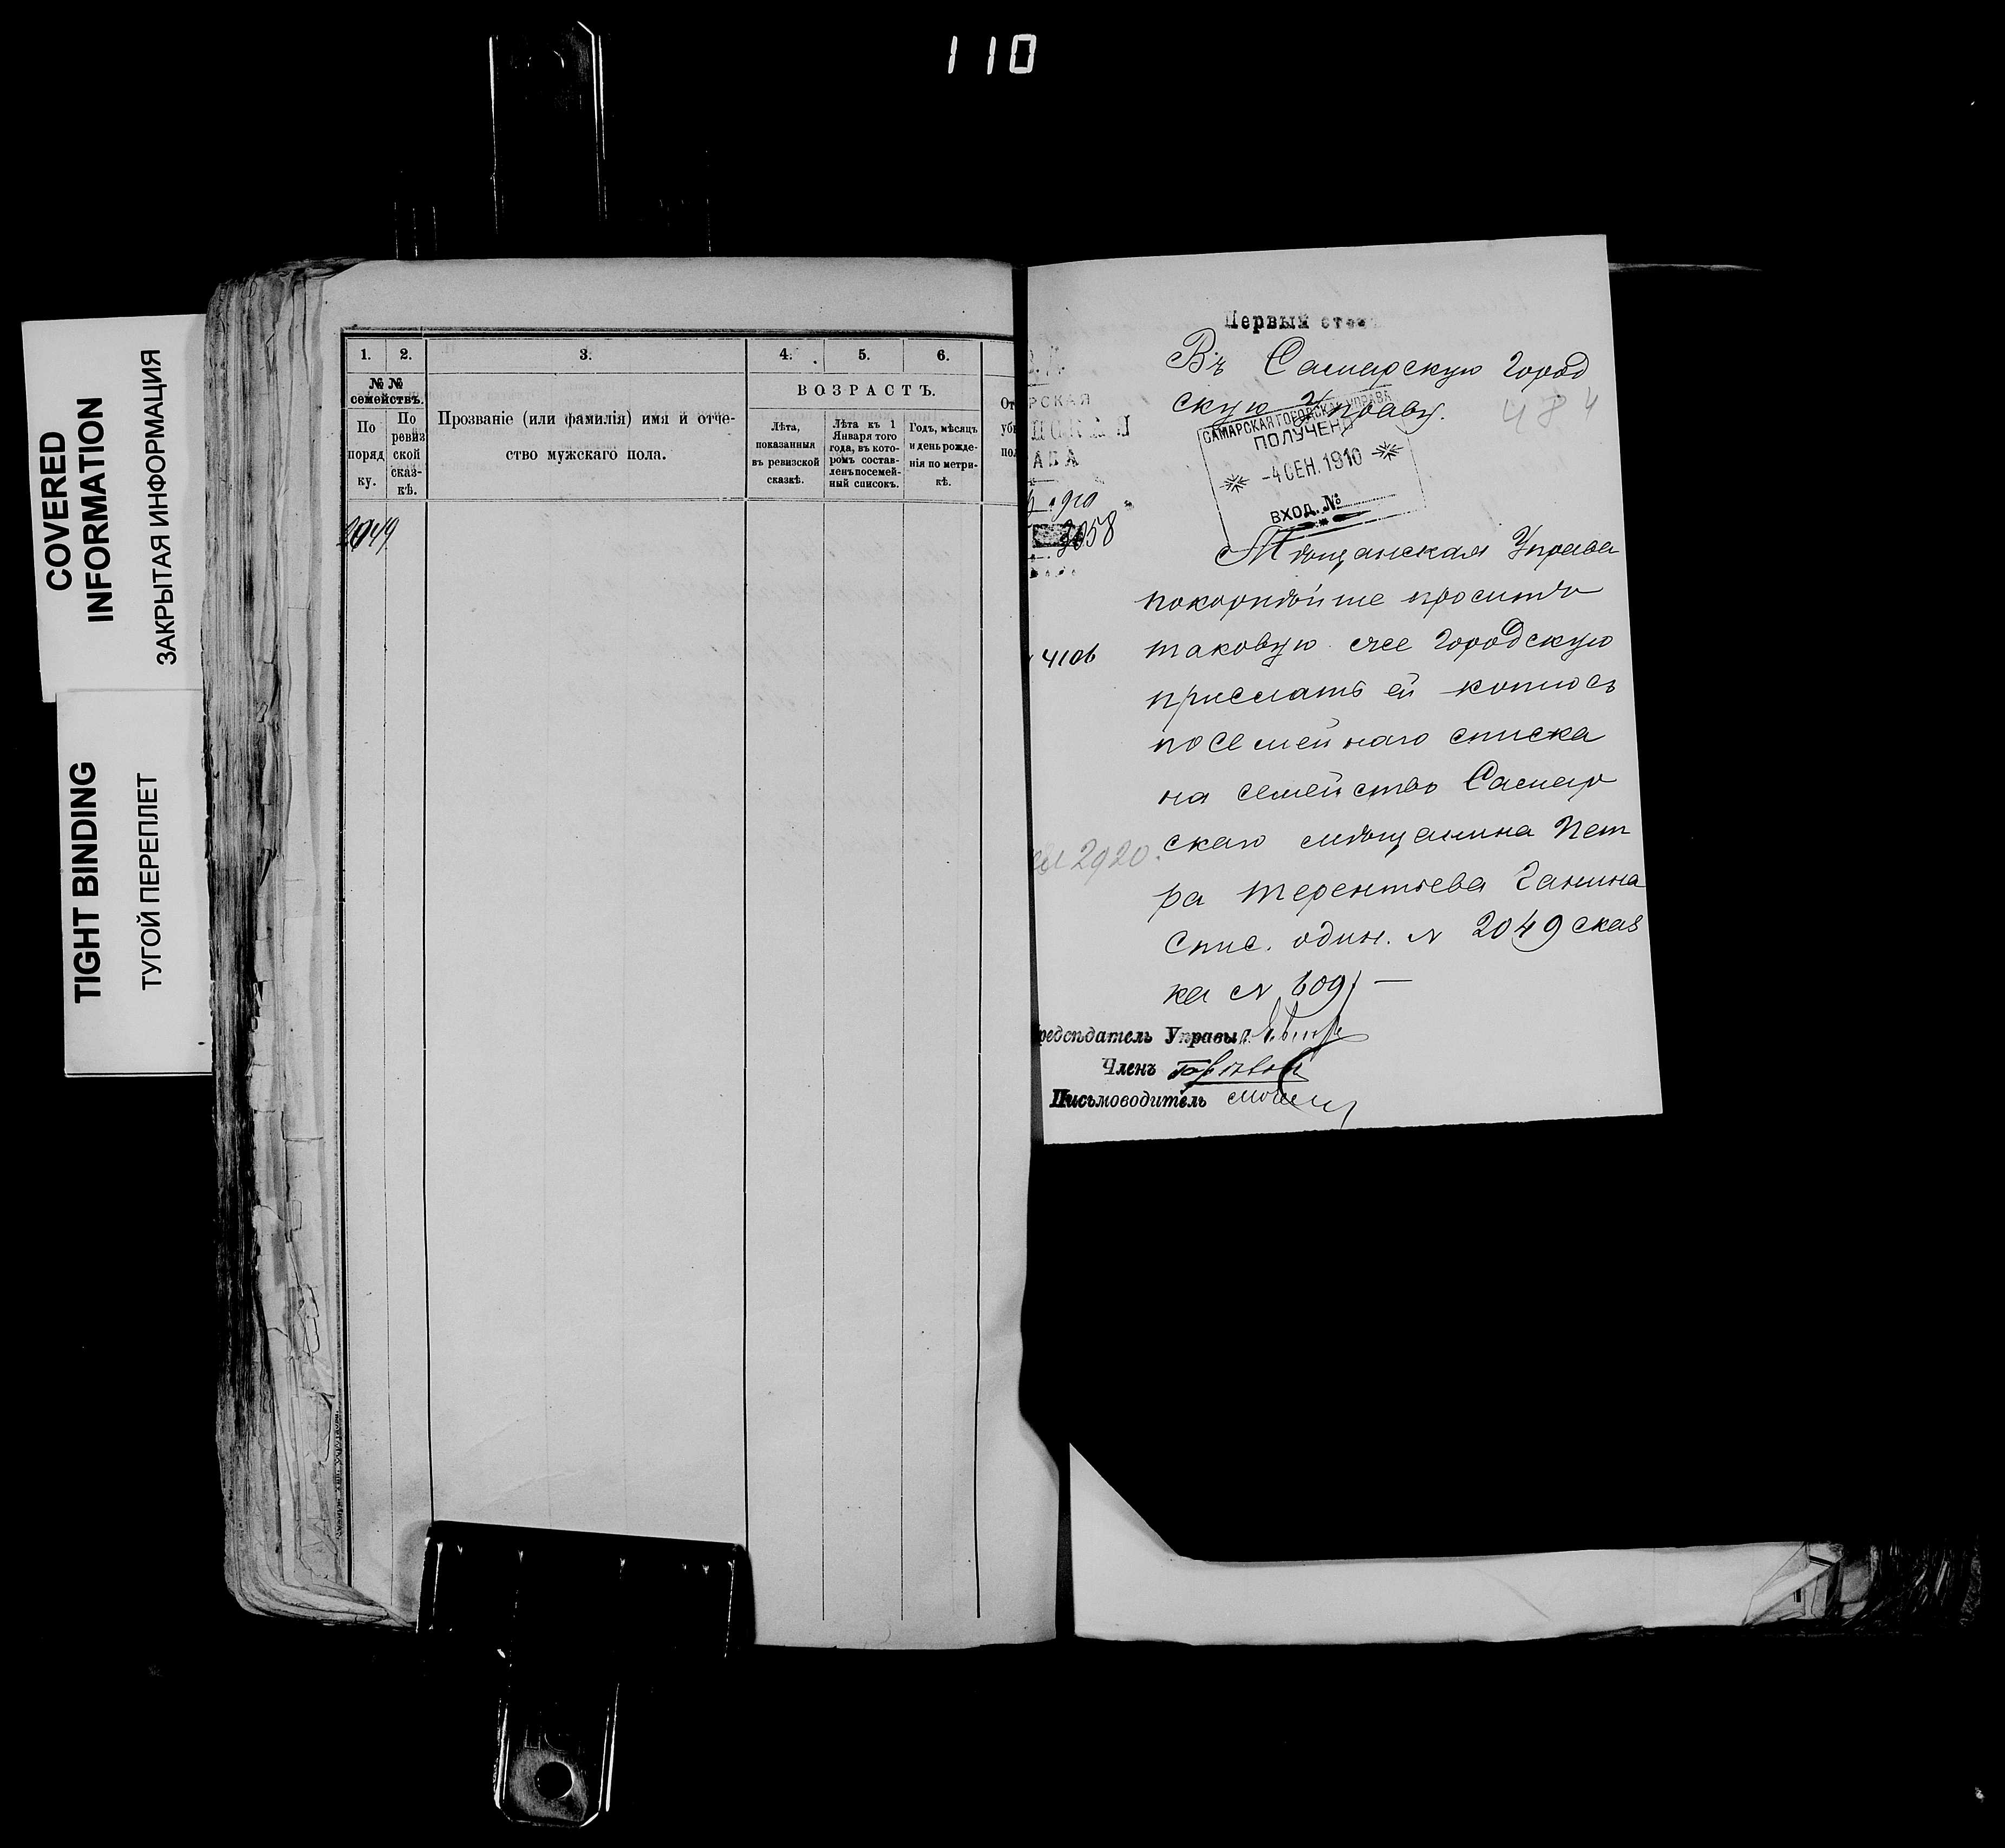 110
COVERED
INFORMATION
ЗАКРЫТАЯ ИНФОРМАЦИЯ
TIGHT BINDING
ТУГОЙ ПЕРЕПЛЕТ
1. 2. 3. 4. 5. 6.
№ №
семействъ.
По
поряд
ку.
По
ревиз
ской
сказ-
кѣ.
Прозваніе (или фамилія) имя и отче-
ство мужскаго пола.
ВОЗРАСТЪ.
Лѣта,
показанныя
въ ревизской
сказкѣ.
Лѣта къ 1
Января того
года, въ кото-
ромъ состав-
ленъ посемей-
ный списокъ.
Годъ, мѣсяцъ
и день рожде-
нія по метри-
кѣ.
2049
Первый
Въ Самарскую Город
скую Управу.
484
САМАРСКАЯ ГОРОДСКАЯ УПРАВА
ПОЛУЧЕНО
-4 СЕН. 1910
ВХОД. №
РСКАЯ
3058
Мѣщанская Управа
покорнѣйше проситъ
таковую же Городскую
4106
прислать ей копію съ
посемейнаго списка
на семейство Самар
скаго мѣщанина Пет
2920.
ра Терентьева Ганина
Спис. один. № 2049 сказ
ка № 609 —
редсѣдатель Управы
Членъ
Письмоводитель